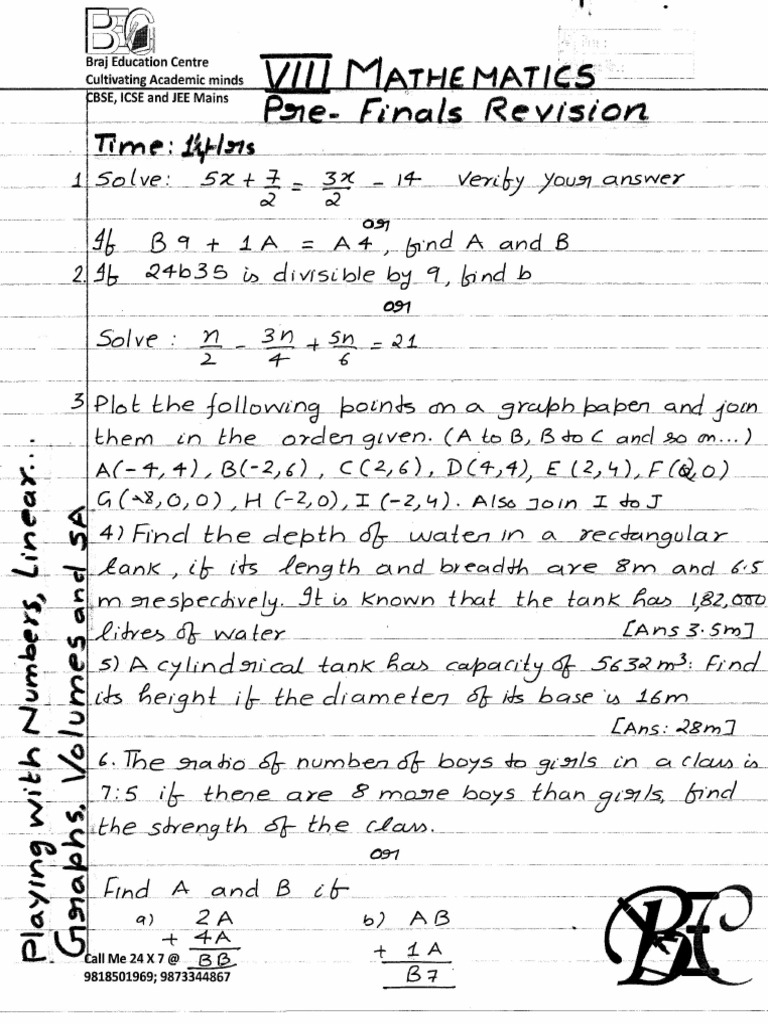 BEC
Braj Education Centre
Cultivating Academic minds
CBSE, ICSE and JEE Mains
VIII MATHEMATICS
Pre- Finals Revision
Time: 1½Hrs
1 Solve: 5x + 7/2 = 3x/2 - 14 Verify your answer
or
If B9 + 1A = A4, find A and B
2. If 24b35 is divisible by 9, find b
or
Solve: n/2 - 3n/4 + 5n/6 = 21
3 Plot the following points on a graph paper and join
them in the order given. (A to B, B to C and so on...)
A(-4,4), B(-2,6), C(2,6), D(4,4), E(2,4), F(2,0)
G(-8,0,0), H(-2,0), I(-2,4). Also Join I to J
4) Find the depth of water in a rectangular
tank, if its length and breadth are 8m and 6.5
m respectively. It is known that the tank has 1,82,000
litres of water [Ans 3.5m]
5) A cylindrical tank has capacity of 5632m³: Find
its height if the diameter of its base is 16m
[Ans: 28m]
6. The ratio of number of boys to girls in a class is
7:5 if there are 8 more boys than girls, find
the strength of the class.
or
Find A and B if
a) 2A b) AB
+ 4A + 1A
BB B7
Call Me 24 X 7 @
9818501969; 9873344867
Playing with Numbers, Linear...
Graphs, Volumes and SA
BEC